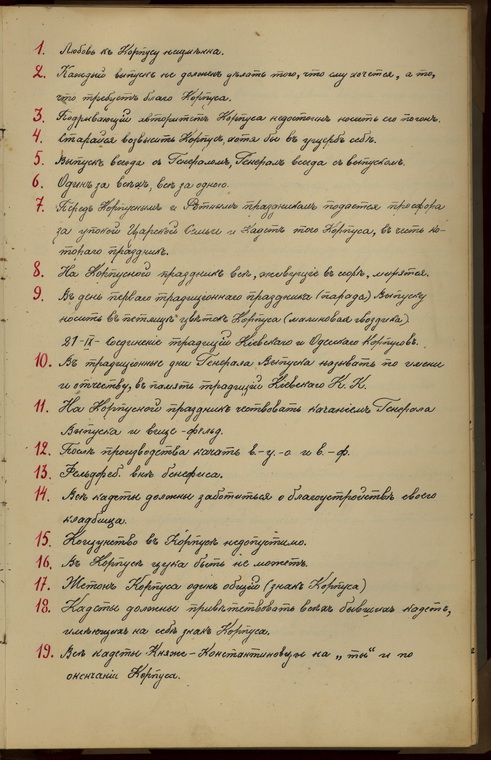 1. Любовь къ Корпусу неизмѣнна.
2. Каждый выпускъ не долженъ дѣлать того, что ему хочется, а то,
что требуетъ благо Корпуса.
3. Подрывающій авторитетъ Корпуса недостоинъ носить его погонъ.
4. Старайся возвысить Корпусъ, хотя бы въ ущербъ себѣ.
5. Выпускъ всегда съ Генераломъ, Генералъ всегда съ выпускомъ.
6. Одинъ за всѣхъ, всѣ за одного.
7. Передъ Корпуснымъ и Ротнымъ праздникомъ подается просфора
за упокой Царской Семьи и Кадетъ того Корпуса, въ честь ко-
тораго праздникъ.
8. На Корпусной праздникъ всѣ, живущіе въ ссорѣ, мирятся.
9. Въ день перваго традиціоннаго праздника (парада) Выпуску
носить въ петлицѣ цвѣтокъ Корпуса (малиновая гвоздика)
21-IX- соединеніе традицій Кіевскаго и Одесскаго Корпусовъ.
10. Въ традиціонные дни Генерала Выпуска называть по имени
и отчеству, въ память традицій Кіевскаго К. К.
11. На Корпусной праздникъ чествовать качаніемъ Генерала
Выпуска и вице-фельд.
12. Послѣ производства качать в.-у.-о и в.-ф.
13. Фельдфеб. внѣ бенефиса.
14. Всѣ кадеты должны заботиться о благоустройствѣ своего
кладбища.
15. Кощунство въ Корпусѣ недопустимо.
16. Въ Корпусѣ цука быть не можетъ.
17. Жетонъ Корпуса одинъ общій (знакъ Корпуса)
18. Кадеты должны привѣтствовать всѣхъ бывшихъ кадетъ,
имѣющихъ на себѣ знакъ Корпуса.
19. Всѣ кадеты Княже-Константиновцы на „ты" и по
окончаніи Корпуса.